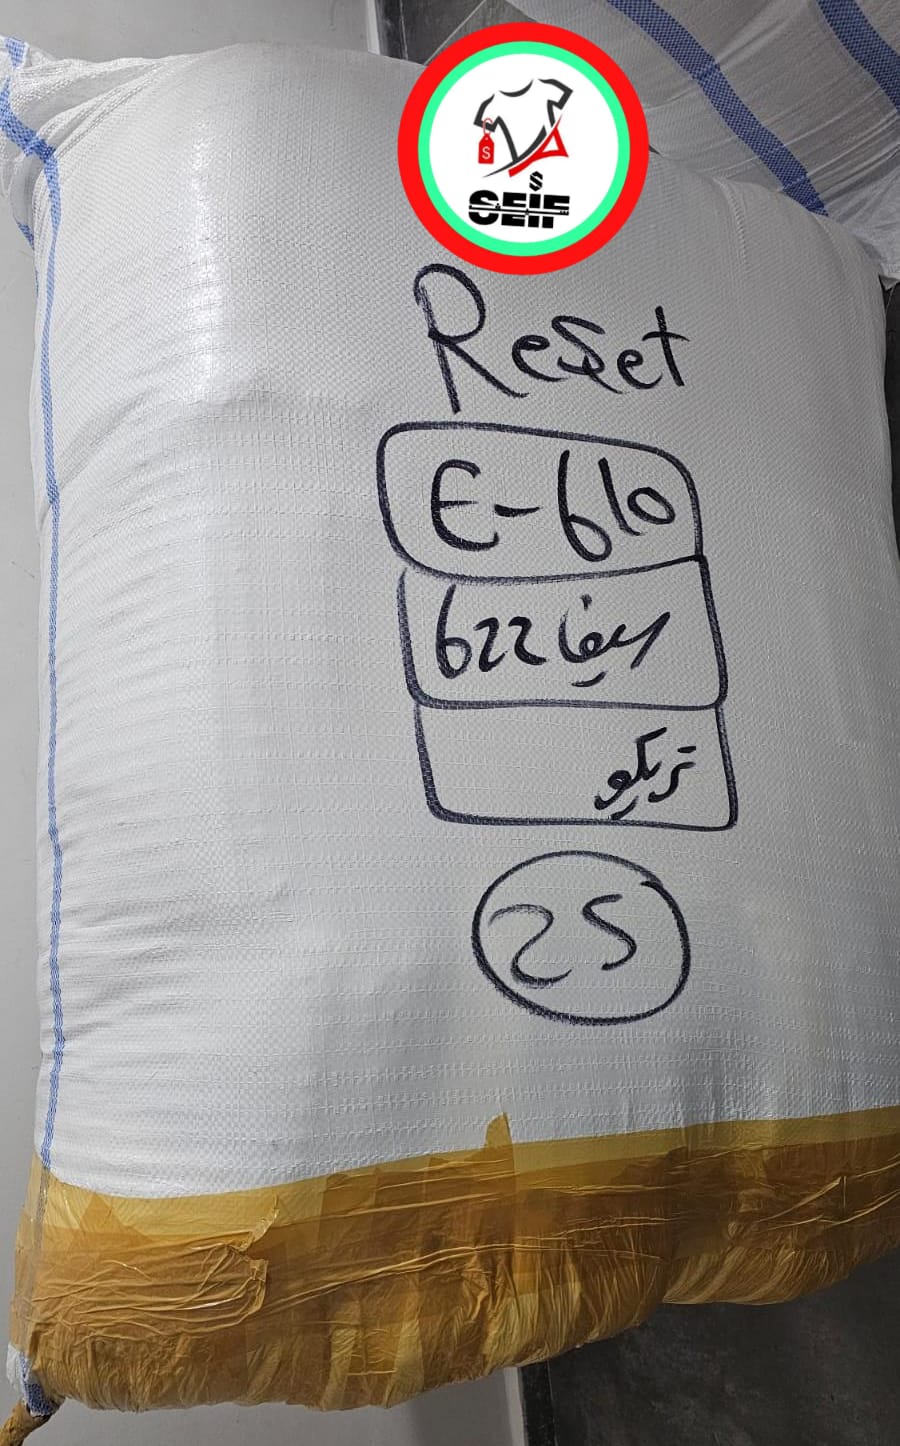 S
$
SEIF
Reset
E-610
سيفا 622
تريكو
25